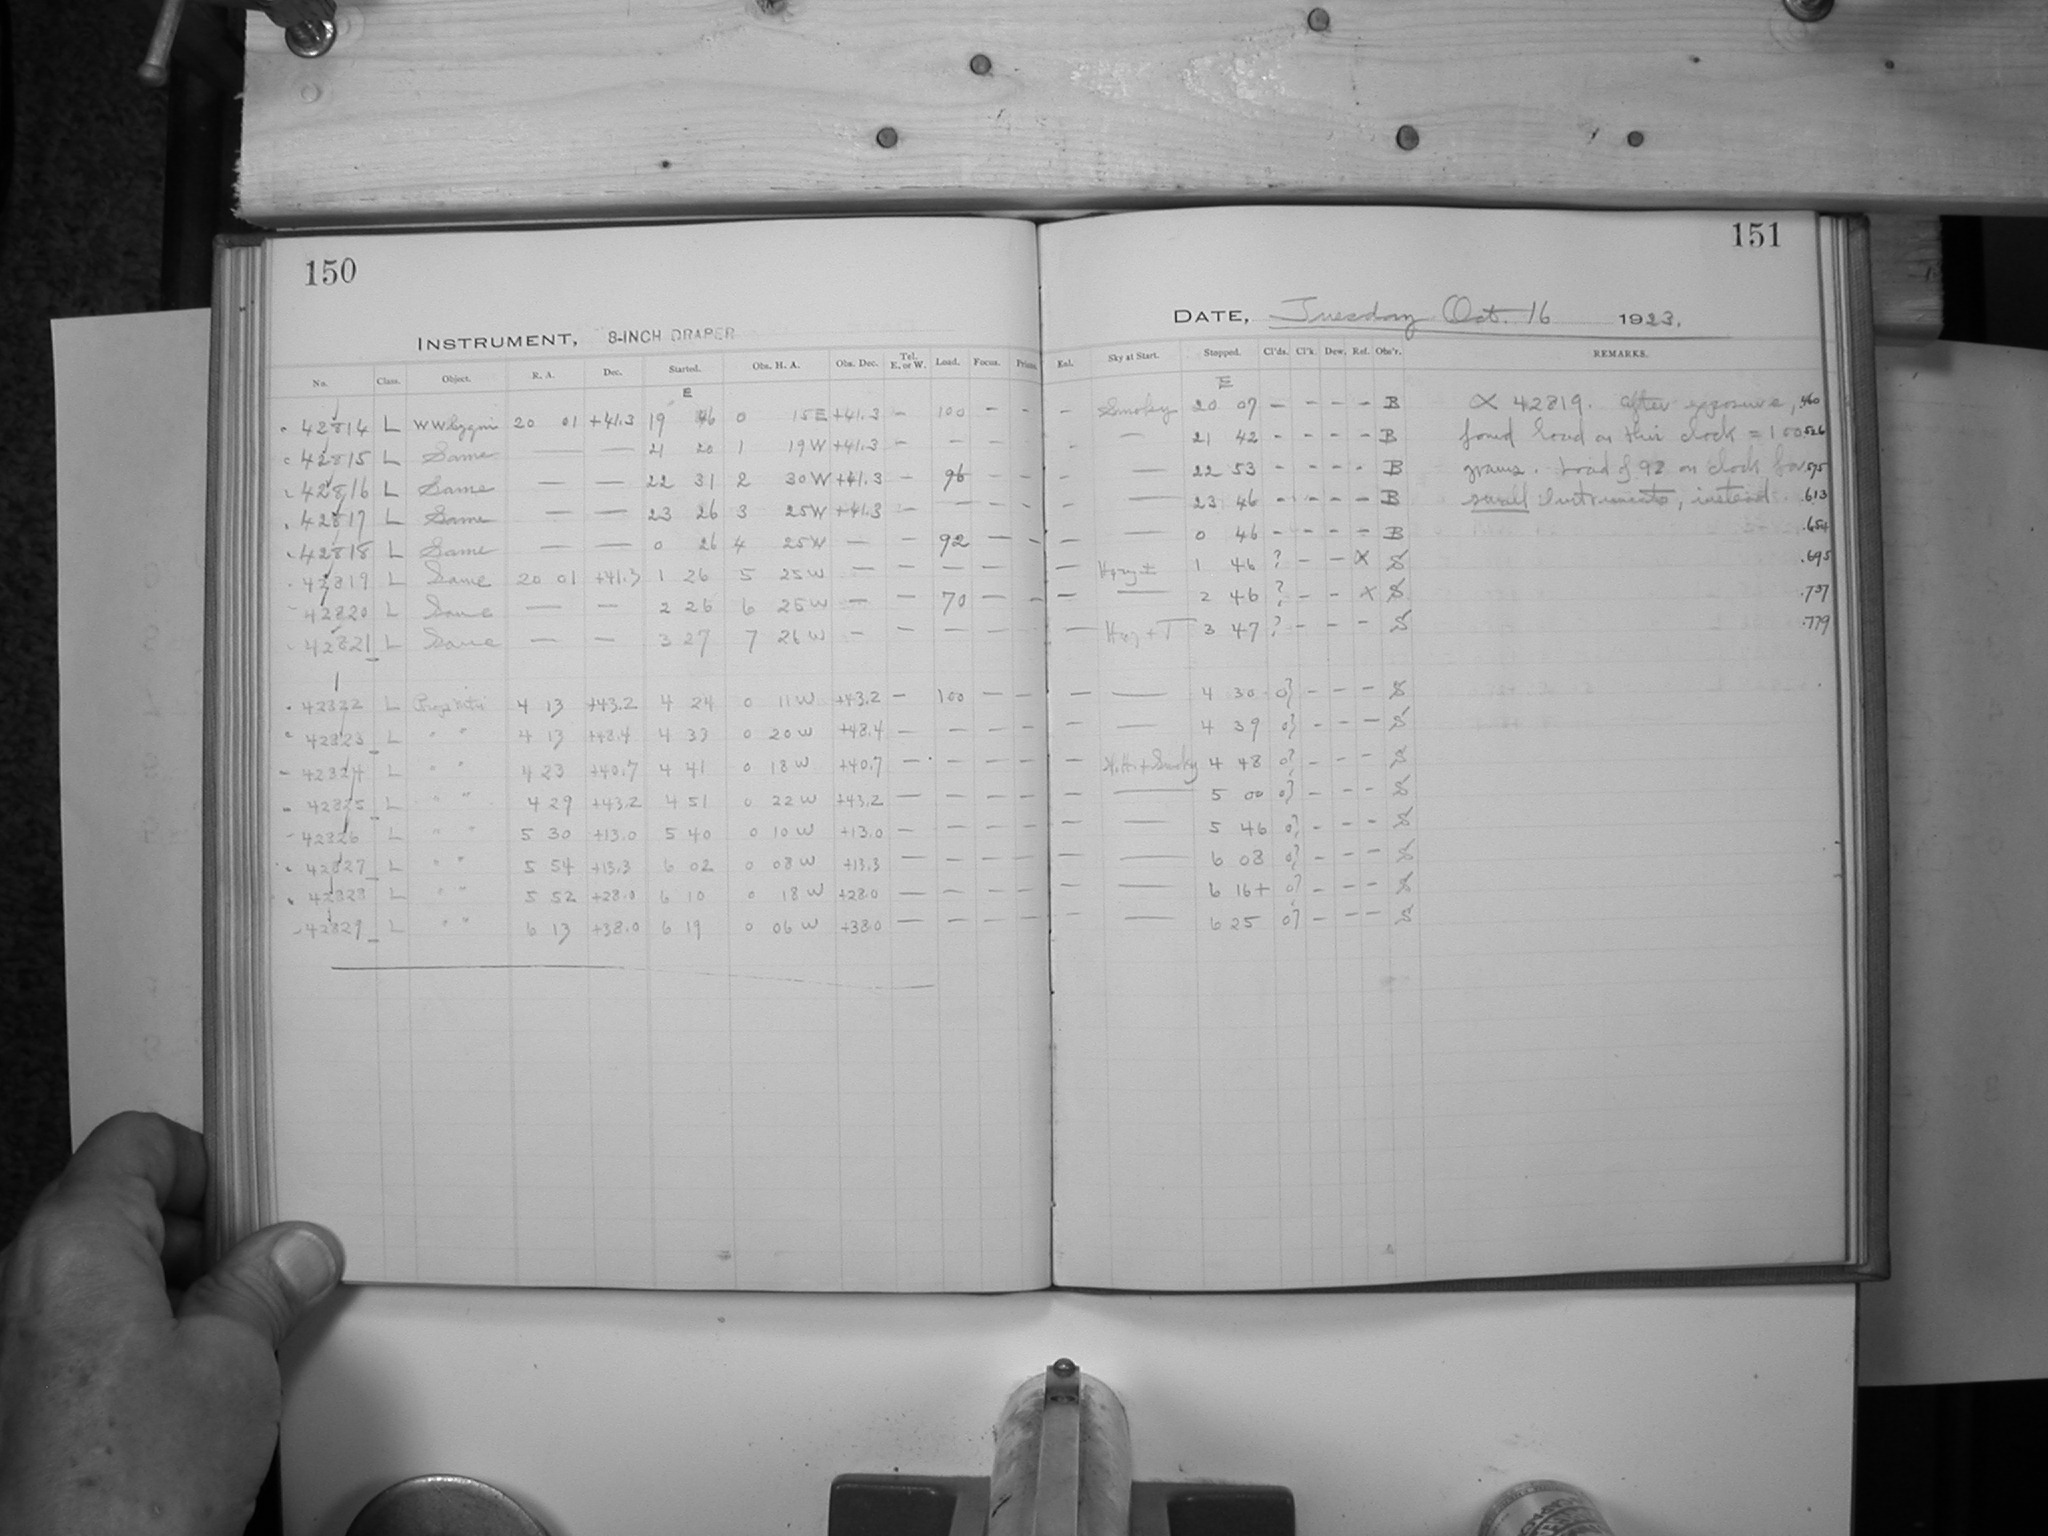 150
INSTRUMENT, 8-INCH DRAPER
No. Class. Object. R. A. Dec. Started. Obs. H. A. Obs. Dec. Tel. E. or W. Load. Focus. Prisms.
E
42814 L WW Cygni 20 01 +41.3 19 46 0 15 E +41.3 – 100 – –
42815 L Same — — 21 20 1 19 W +41.3 – – – –
42816 L Same — — 22 31 2 30 W +41.3 – 96 – –
42817 L Same — — 23 26 3 25 W +41.3 – — – –
42818 L Same — — 0 26 4 25 W — – 92 – –
42819 L Same 20 01 +41.3 1 26 5 25 W — – – – –
42820 L Same — — 2 26 6 25 W — – 70 – –
42821 L Same — — 3 27 7 26 W – – – – –
42822 L 4 13 +43.2 4 24 0 11 W +43.2 – 100 – –
42823 L " " 4 13 +48.4 4 33 0 20 W +48.4 – – – –
42824 L " " 4 23 +40.7 4 41 0 18 W +40.7 – – – –
42825 L " " 4 29 +43.2 4 51 0 22 W +43.2 – – – –
42826 L " " 5 30 +13.0 5 40 0 10 W +13.0 – – – –
42827 L " " 5 54 +13.3 6 02 0 08 W +13.3 – – – –
42828 L " " 5 52 +28.0 6 10 0 18 W +28.0 – – – –
42829 L " " 6 13 +38.0 6 19 0 06 W +38.0 – – – –
151
DATE, Tuesday Oct. 16 1923.
Enl. Sky at Start. Stopped. Cl'ds. Cl'k. Dew. Ref. Obs'r. REMARKS.
E
– Smoky 20 07 – – – – B ∝ 42819. After exposure, .460
– — 21 42 – – – – B found load on this clock = 100 .526
– — 22 53 – – – – B grams. Load of 92 on clock for .575
– — 23 46 – – – – B small instruments, instead. .613
– — 0 46 – – – – B .654
– Hazy ± 1 46 ? – – X S .695
– — 2 46 ? – – X S .737
– Haz + T 3 47 ? – – – S .779
– — 4 30 0? – – – S
– — 4 39 0? – – – S
– + Smoky 4 48 0? – – – S
– — 5 00 0? – – – S
– — 5 46 0? – – – S
– — 6 08 0? – – – S
– — 6 16+ 0? – – – S
– — 6 25 0? – – – S